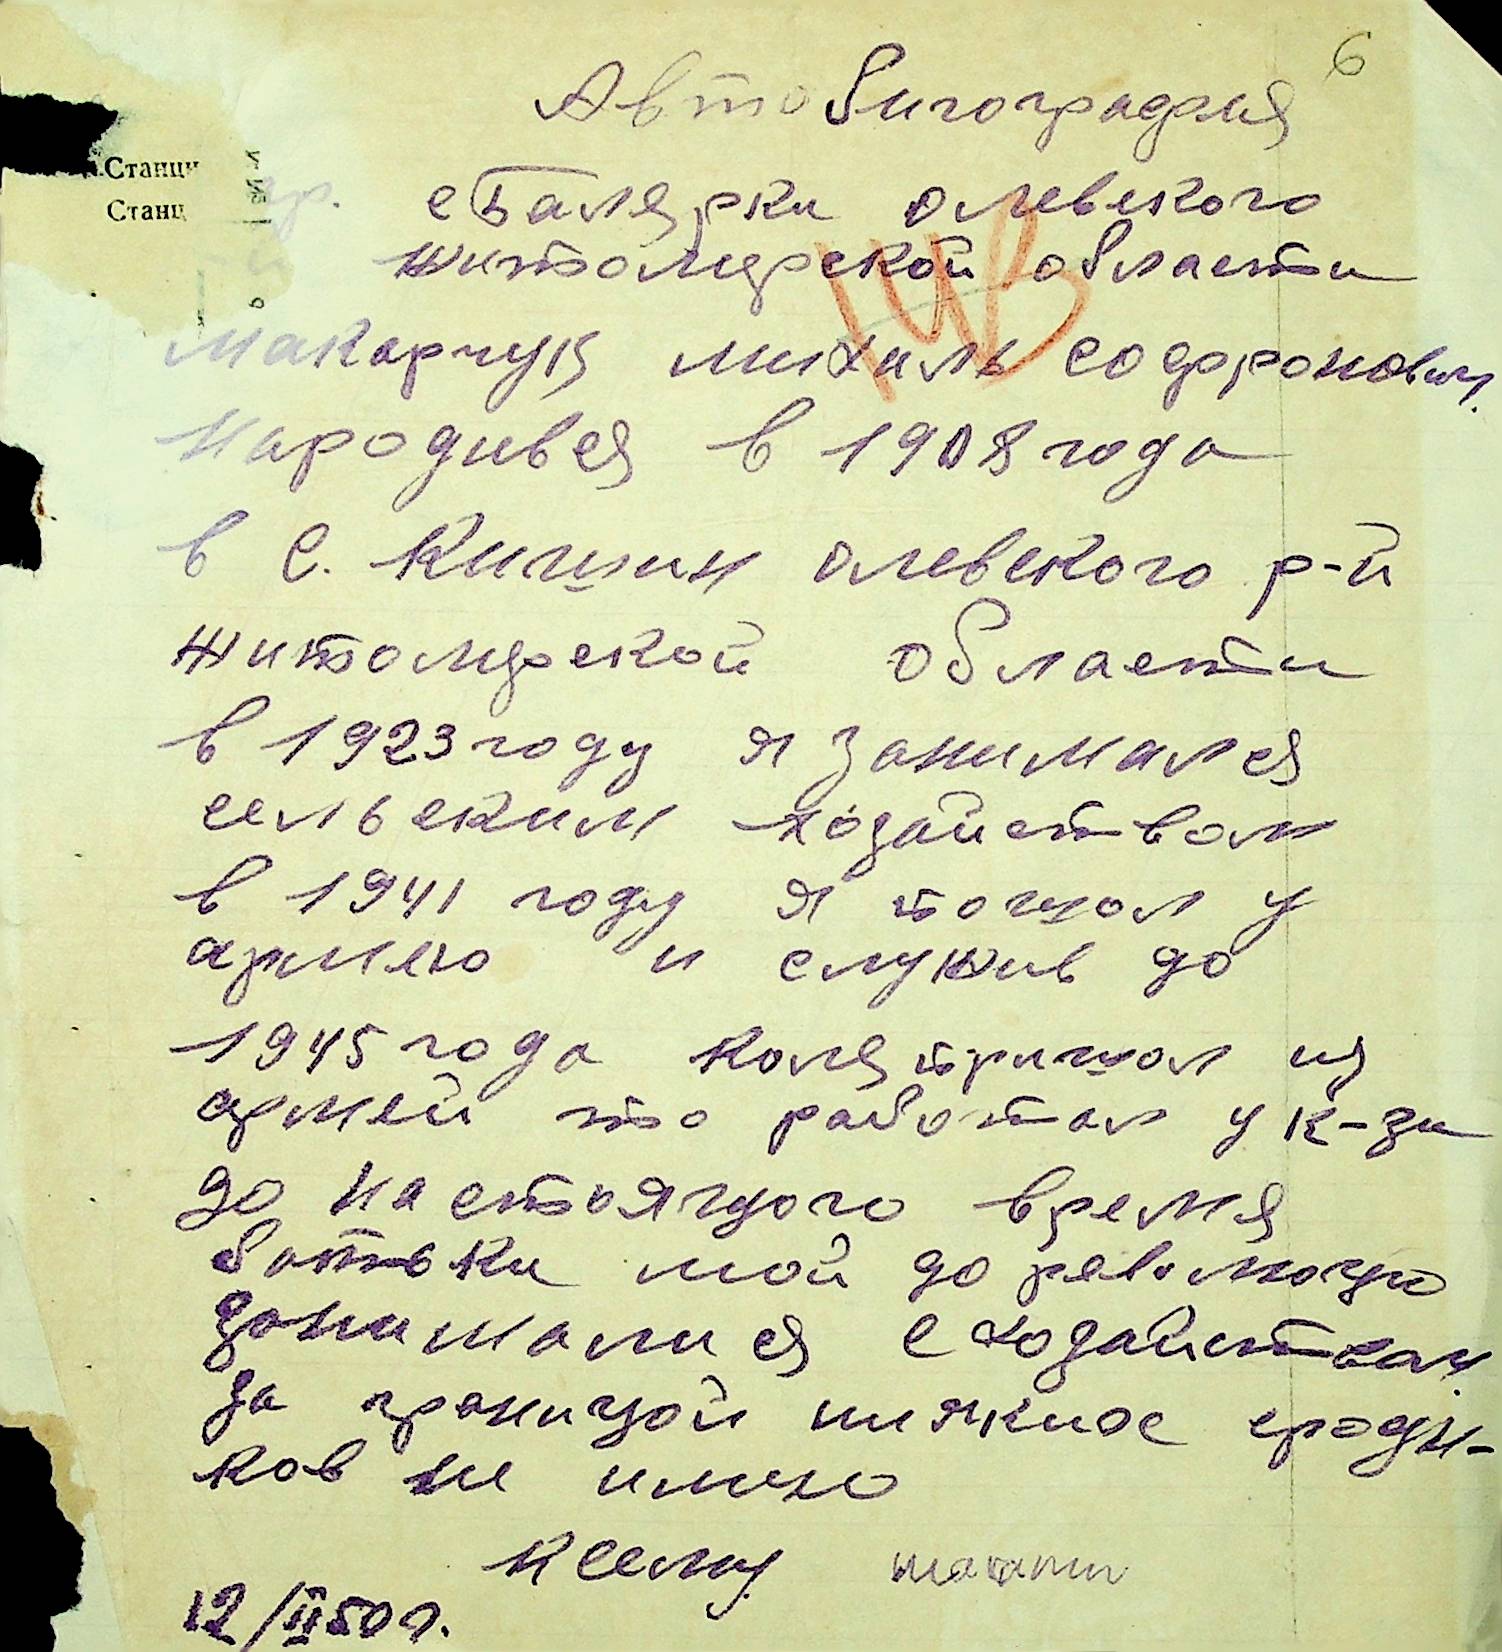 6
Автобиография
Станци
Станц
гр. с Балярки олевского
житомирской области
1ЧВ
макарчук михаль софронович
народився в 1908 года
в с. Кишин олевского р-й
житомирской области
в 1923 году я занимался
сельским ходайством
в 1941 году я пошол у
армею и служив до
1945 года коля пришол из
армей то работал у к-зи
до настоящого время
батьки мой до революцию
занималися с ходайствам
за границой ниякиос сроди-
ков не имею
к сему
12/II 50 г.